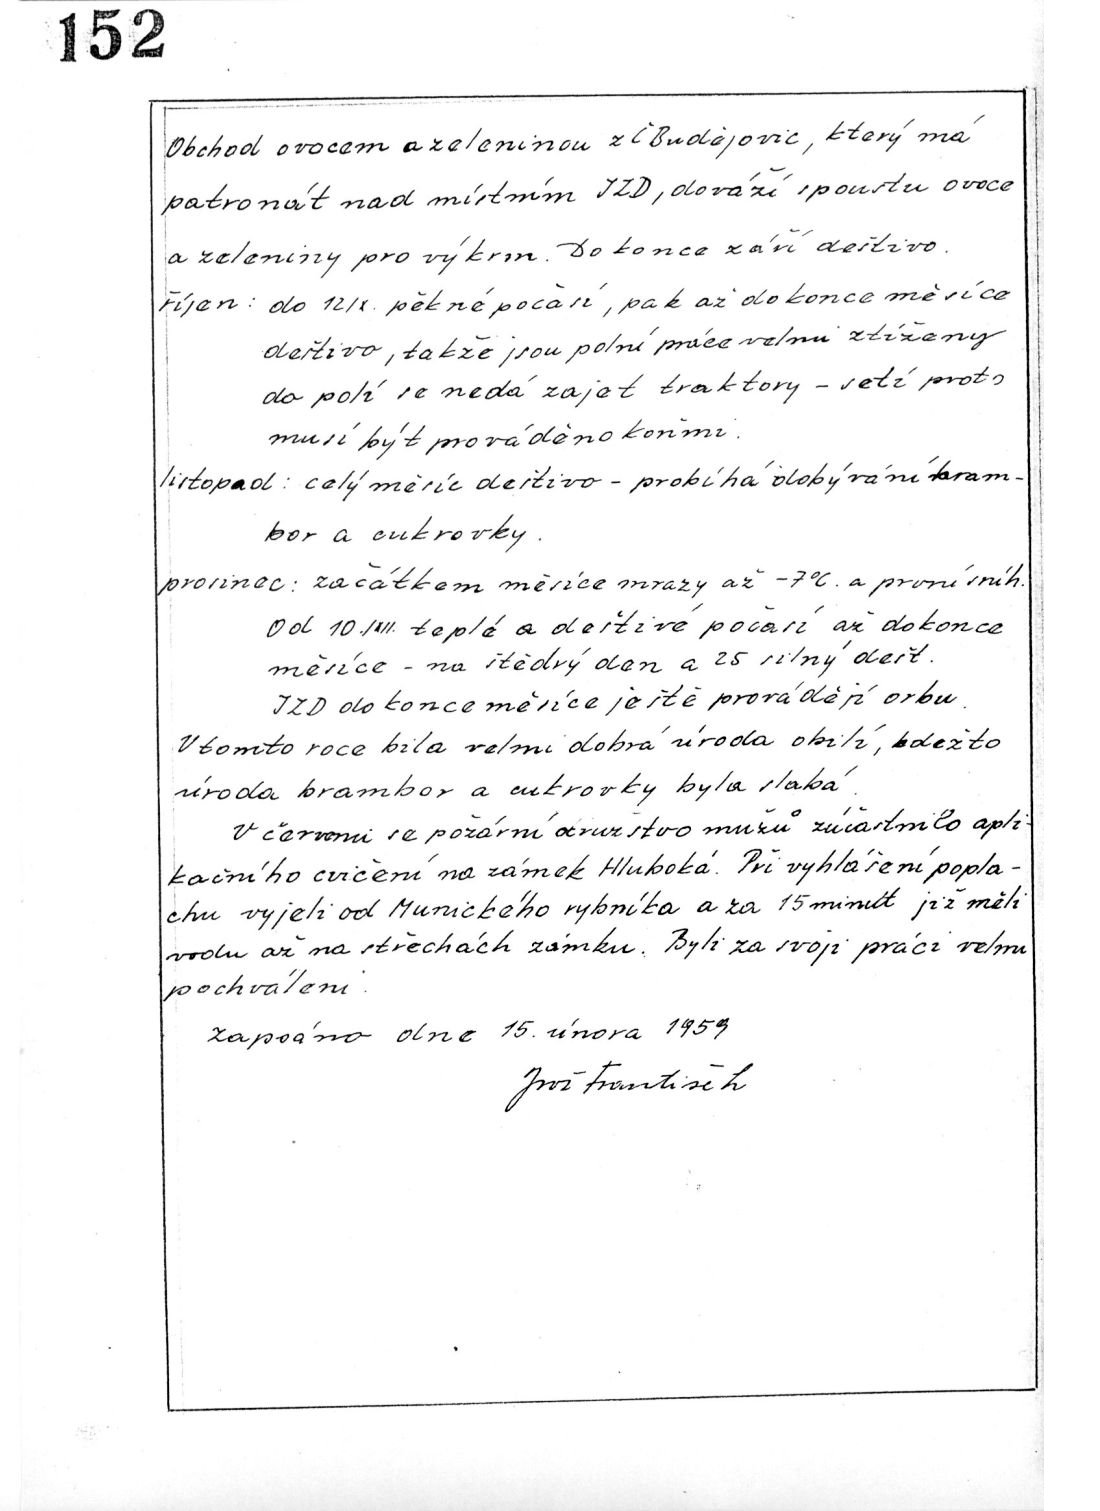 152
Obchod ovocem a zeleninou z Č Budějovic, který má
patronát nad místním JZD, dováží spoustu ovoce
a zeleniny pro výkrm. Do konce září deštivo.
říjen: do 12/X. pěkné počasí, pak až do konce měsíce
deštivo, takže jsou polní práce velmi ztíženy
do polí se nedá zajet traktory – setí proto
musí být prováděno koňmi.
listopad: celý měsíc deštivo – probíhá dobývání bram-
bor a cukrovky.
prosinec: začátkem měsíce mrazy až -7°C. a první sníh.
Od 10./XII. teplé a deštivé počasí až do konce
měsíce – na štědrý den a 25 silný dešť.
JZD do konce měsíce ještě provádějí orbu.
V tomto roce bila velmi dobrá úroda obilí, kdežto
úroda brambor a cukrovky byla slabá.
V červenci se požární družstvo mužů zúčastnilo apli-
kačního cvičení na zámek Hluboká. Při vyhlášení popla-
chu vyjeli od Munického rybníka a za 15 minut již měli
vodu až na střechách zámku. Byli za svoji práci velmi
pochváleni.
Zapsáno dne 15. února 1959
František